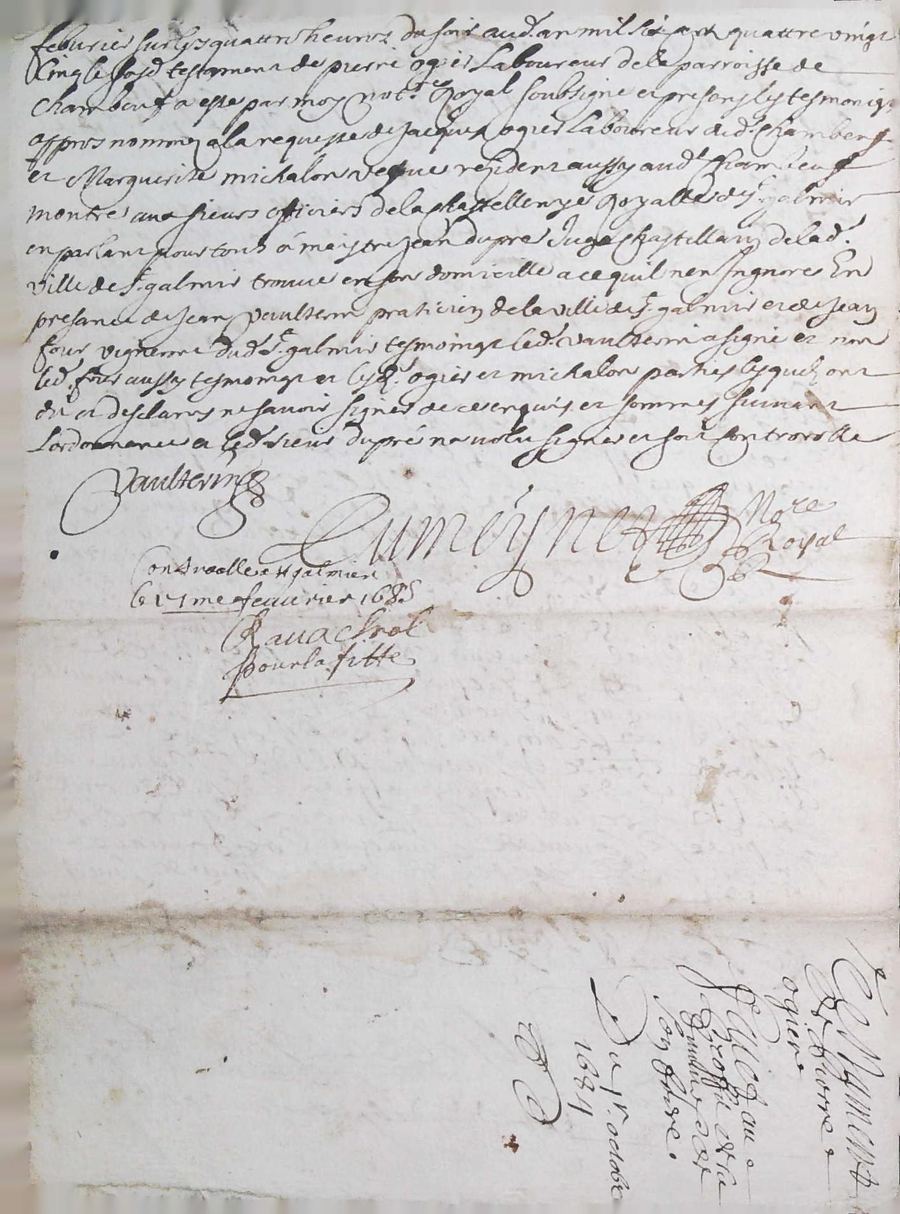 febvrier sur les quattre heures du soir aud. an mil six cent quattre vingt
cinq le susd testament de pierre ogier Laboureur de la parroisse de
Chambeuf a esté par moy not.re Royal soubsigné et presens les tesmoings
appres nommes a la requeste de Jacques ogier Laboureur dud. Chambeuf
et Marguerite michalon vefve resident aussy aud. Chambeuf
montré aux sieurs officiers de la Chastellenye Royalle de St. galmier
en parlant pour tous a maistre Jean dupré Juge Chastellain de lad.
ville de St. galmier trouvé en son domicille a ce quil nen Ingnore En
presance de Jean Vaulterin praticien de la ville de St. galmier et de Jean
four vigneron dud St. galmier tesmoings led. Vaulterin a signé et non
led. four aussy tesmoingt et lesd. ogier et michalon parties lesquels ont
dit et desclaré ne savoir signer de ce enquis et sommes suivant
Lordonnance et led. sieur dupré na volu signer et soit controrollé
Vaulterin
Cumeynet No.re
Royal
Controollé a St galmier
le 21me febvrier 1685
Ravachol
pour lafitte
Testament
de Pierre
ogier
son frere.
Du 1r. octobre
1684